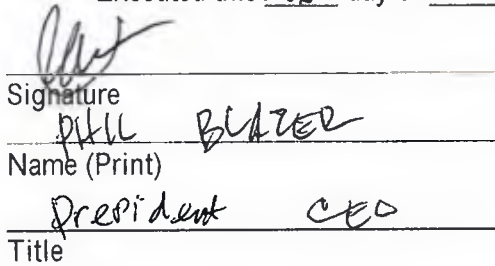 Signature
PHIL BLAZER
Name (Print)
President CEO
Title